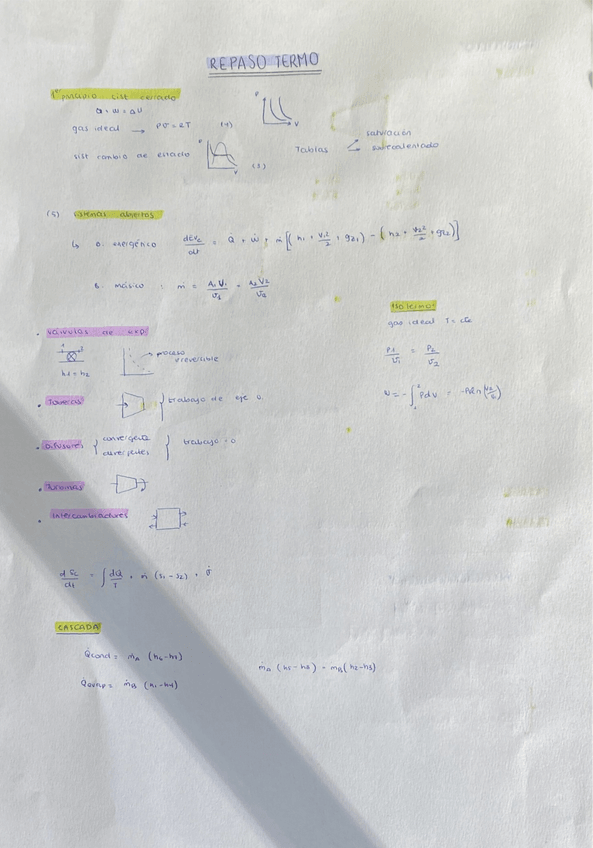 REPASO TERMO
1er PRINCIPIO SIST CERRADO
Q + W = ΔU
gas ideal → PV = RT (4)
P
V
sist cambio de estado
P
V
(5)
Tablas
saturación
sobrecalentado
(5) sistemas abiertos
↳ B. energético dEvc/dt = Q̇ + Ẇ + ṁ [(h1 + V1²/2 + gz1) - (h2 + V2²/2 + gz2)]
B. másico : ṁ = A1 V1/v1 = A2 V2/v2
ISOTERMO
gas ideal T = cte
P1/v1 = P2/v2
• válvulas de exp
proceso irreversible
h1 = h2
• Toberas } trabajo de eje 0
• Difusores { convergente
divergentes } trabajo = 0
• Turbinas
• Intercambiadores
CASCADA
Q̇cond = ṁA
Q̇evap = ṁB (h1-h4)
ṁA (h5-h8) = ṁB (h2-h3)